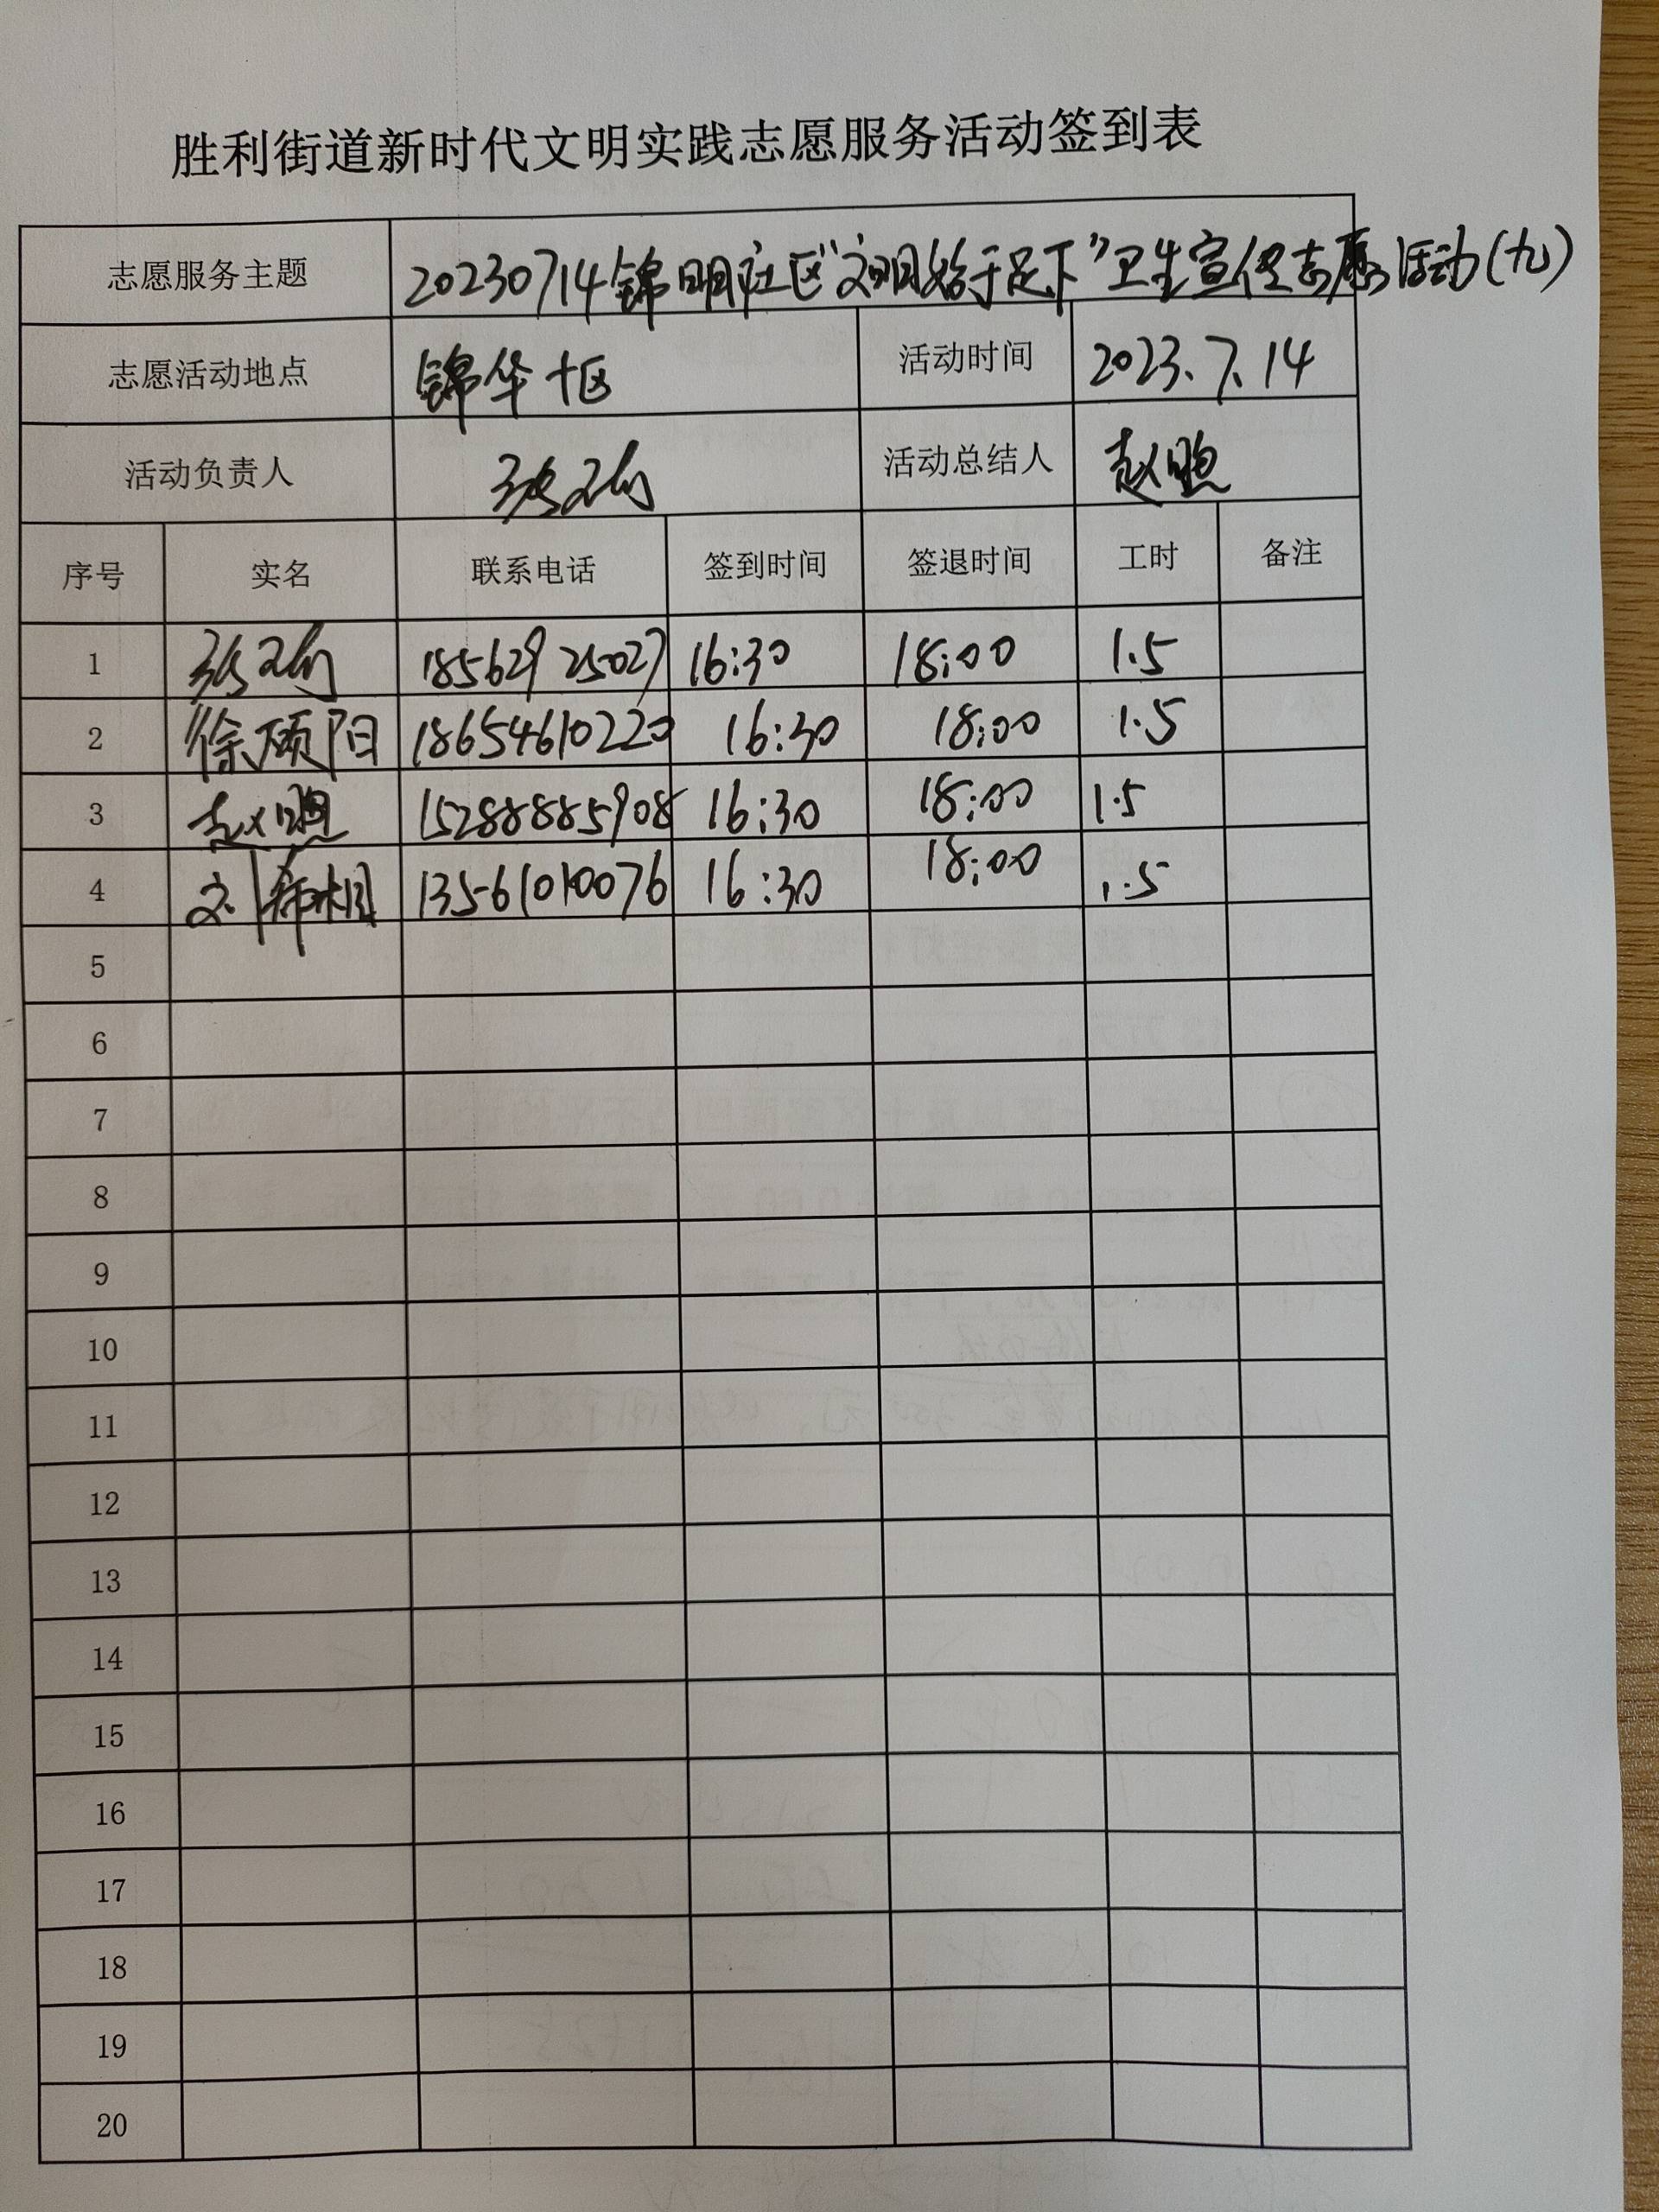 胜利街道新时代文明实践志愿服务活动签到表
志愿服务主题 20230714锦明社区“文明始于足下”卫生宣传志愿活动(九)
志愿活动地点 锦华十区 活动时间 2023.7.14
活动负责人 活动总结人 赵
序号 实名 联系电话 签到时间 签退时间 工时 备注
1 18562925027 16:30 18:00 1.5
2 徐硕阳 18654610220 16:30 18:00 1.5
3 赵 15288885908 16:30 18:00 1.5
4 刘 13561010076 16:30 18:00 1.5
5
6
7
8
9
10
11
12
13
14
15
16
17
18
19
20